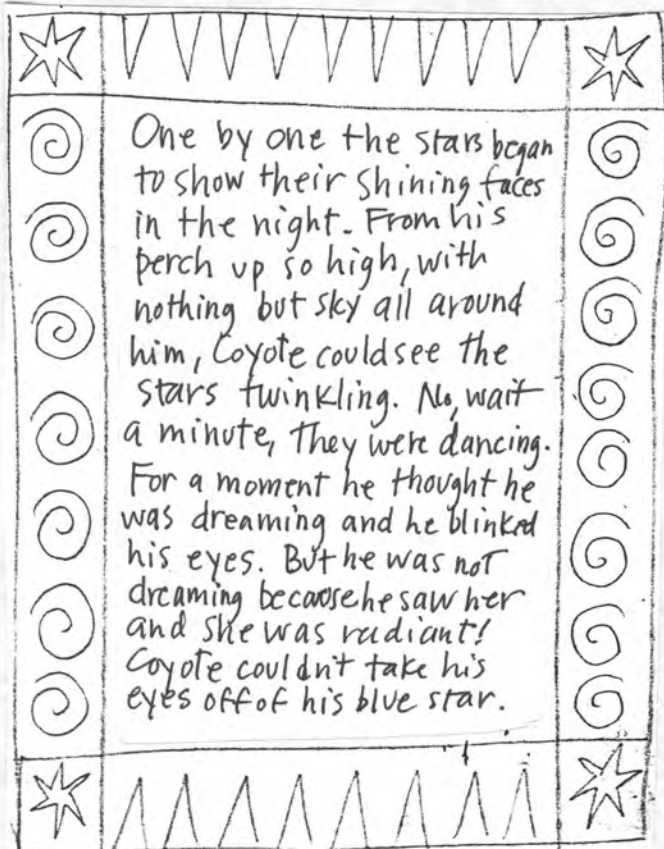 One by one the stars began
to show their shining faces
in the night. From his
perch up so high, with
nothing but sky all around
him, Coyote could see the
stars twinkling. No, wait
a minute, They were dancing.
For a moment he thought he
was dreaming and he blinked
his eyes. But he was not
dreaming because he saw her
and she was radiant!
Coyote couldn't take his
eyes off of his blue star.